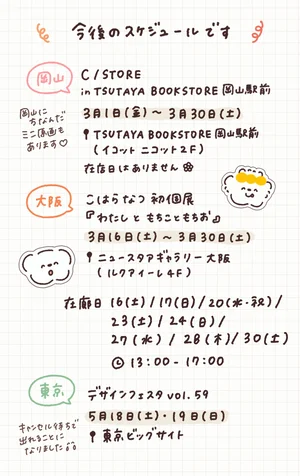 今後のスケジュールです
岡山
C/STORE
in TSUTAYA BOOKSTORE 岡山駅前
3月1日(金)〜3月30日(土)
TSUTAYA BOOKSTORE 岡山駅前
(イコットニコット2F)
在店日はありません
岡山に
ちなんだ
ミニ原画も
あります♡
大阪
こはらなつ 初個展
『わたしと もちこともちお』
3月16日(土)〜3月30日(土)
ニュースタアギャラリー大阪
(ルクアイーレ4F)
在廊日 16(土)/17(日)/20(水・祝)/
23(土)/24(日)/
27(水)/28(木)/30(土)
13:00-17:00
東京
デザインフェスタ vol.59
5月18日(土)・19日(日)
東京ビッグサイト
キャンセル待ちで
出れることに
なりました